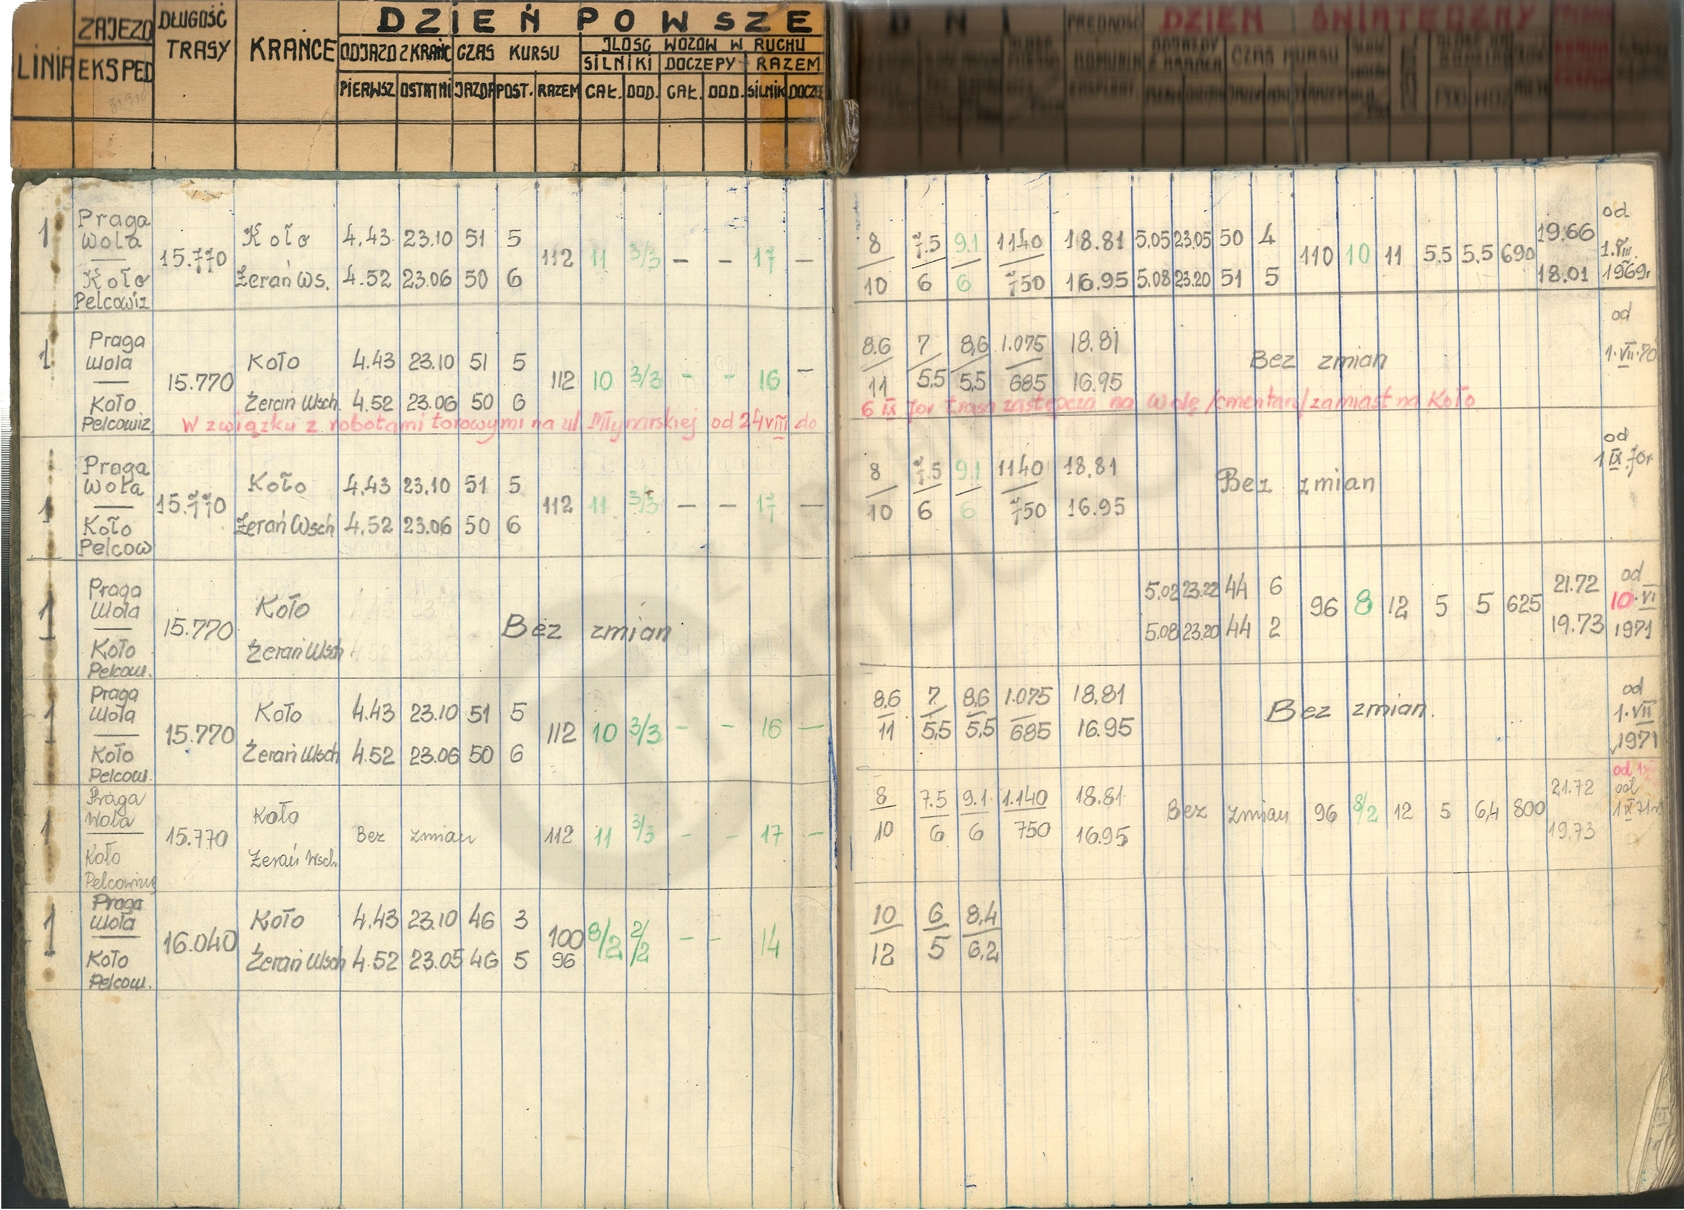 DZIEŃ POWSZE
LINIA ZAJEZD DŁUGOŚĆ TRASY KRAŃCE ODJAZD Z KRAŃC CZAS KURSU ILOŚĆ WOZÓW W RUCHU
EKSPED SILNIKI DOCZEPY RAZEM
PIERWSZ OSTATNI JAZDA POST. RAZEM CAŁ. DOD. CAŁ. DOD. SILNIK DOCZE
D N I
DZIEŃ ŚWIĄTECZNY
CZAS KURSU
1 Praga Wola — Koło Pelcowiz 15.770
Koło 4.43 23.10 51 5 112 11 3/3 — — 17 —
Żerań Ws. 4.52 23.06 50 6
8 7.5 9.1 1140 18.81 5.05 23.05 50 4 110 10 11 5,5 5,5 690 19.66 od 1.VIII. 1969r
10 6 6 750 16.95 5.08 23.20 51 5 18.01
1 Praga Wola — Koło Pelcowiz 15.770
Koło 4.43 23.10 51 5 112 10 3/3 - - 16 —
Żerań Wsch. 4.52 23.06 50 6
8.6 7 8,6 1.075 18.81 Bez zmian od 1.VII.70
11 5,5 5,5 685 16.95
W związku z robotami torowymi na ul Młynarskiej od 24 VIII do 6 IX 70r trasa zastępcza na Wolę /cmentarz/ zamiast na Koło
1 Praga Wola — Koło Pelcow 15.770
Koło 4.43 23.10 51 5 112 11 3/3 — — 17 —
Żerań Wsch 4.52 23.06 50 6
8 7.5 9.1 1140 18.81 Bez zmian od 1 IX 70r
10 6 6 750 16.95
1 Praga Wola — Koło Pelcow. 15.770
Koło Bez zmian
Żerań Wsch
5.02 23.22 44 6 96 8 12 5 5 625 21.72 od 10.VI 1971
5.08 23.20 44 2 19.73
1 Praga Wola — Koło Pelcow. 15.770
Koło 4.43 23.10 51 5 112 10 3/3 - - 16 —
Żerań Wsch 4.52 23.06 50 6
8,6 7 8,6 1.075 18,81 Bez zmian. od 1.VII 1971
11 5,5 5,5 685 16.95
1 Praga Wola — Koło Pelcowizn 15.770
Koło Bez zmian 112 11 3/3 - - 17 —
Żerań Wsch.
8 7.5 9.1 1.140 18.81 Bez zmian 96 8/2 12 5 6,4 800 21.72 od 1 IX 71r
10 6 6 750 16.95 19.73
1 Praga Wola — Koło Pelcow. 16.040
Koło 4.43 23.10 46 3 100 8/2 2/2 - - 14
Żerań Wsch 4.52 23.05 46 5 96
10 6 8,4
12 5 6,2